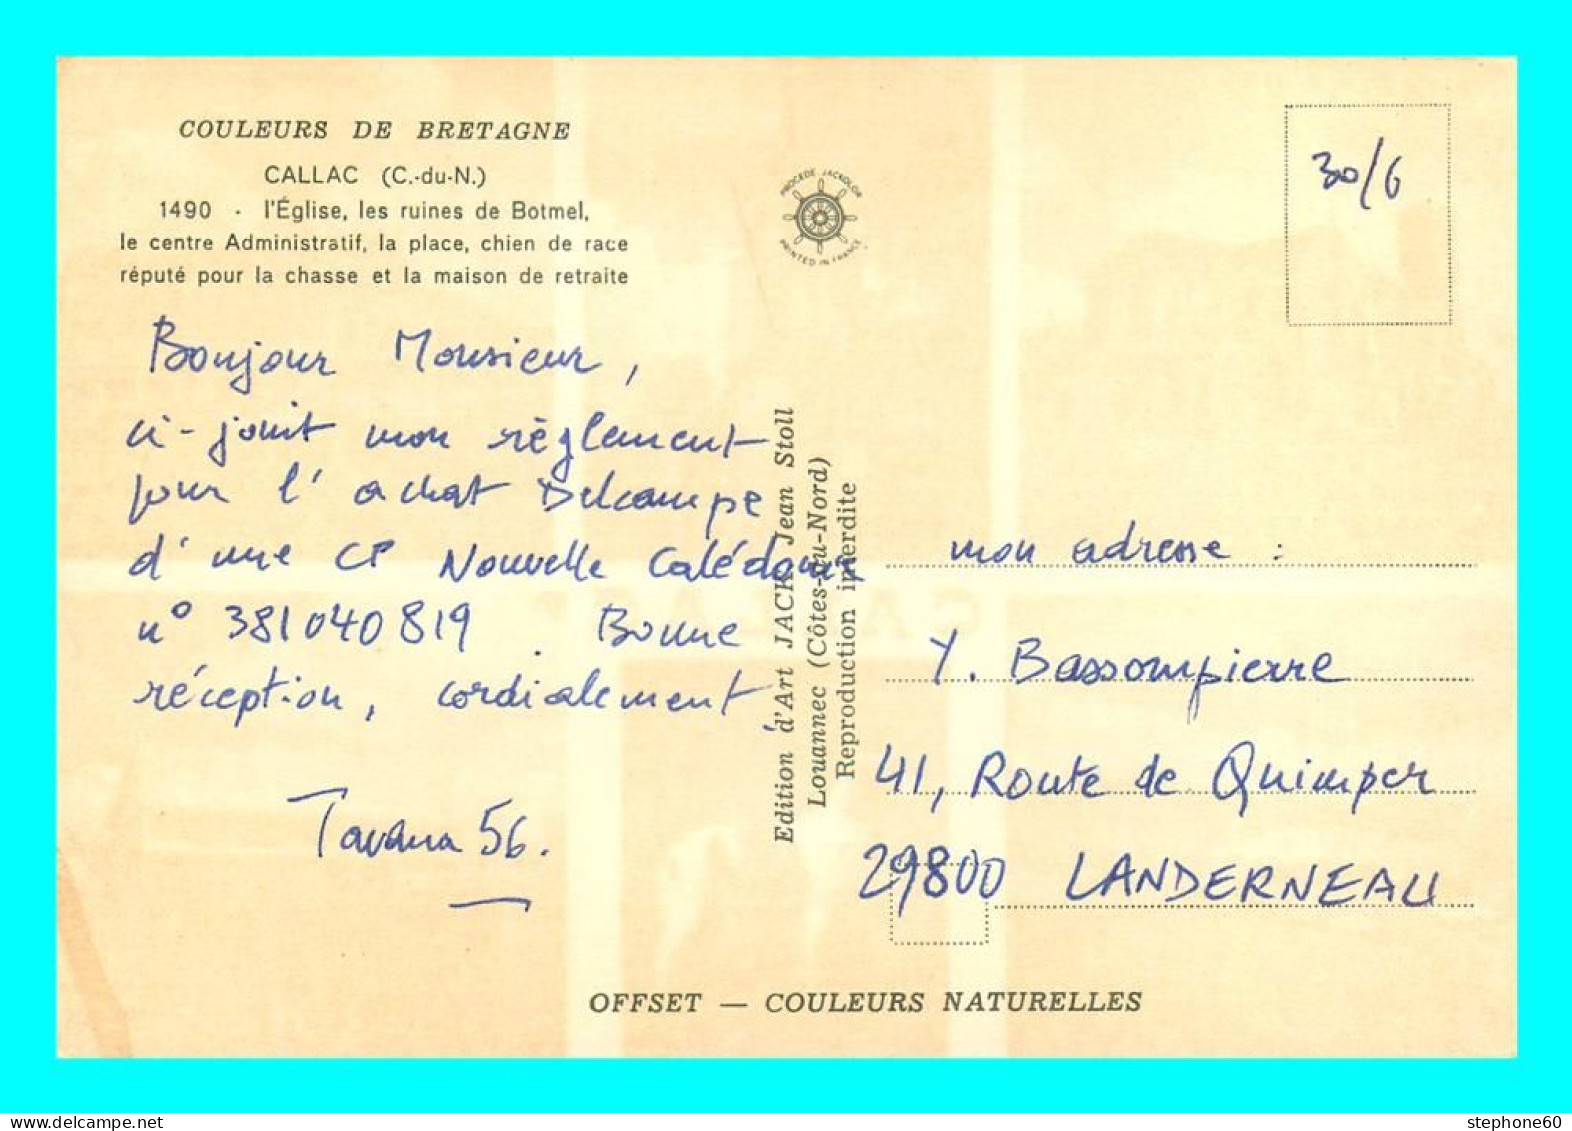 COULEURS DE BRETAGNE
CALLAC (C.-du-N.)
1490 - l'Église, les ruines de Botmel,
le centre Administratif, la place, chien de race
réputé pour la chasse et la maison de retraite
PROCÉDÉ JACKOLOR
PRINTED IN FRANCE
30/6
Bonjour Monsieur,
ci-joint mon règlement
pour l'achat Delcampe
d'une CP Nouvelle Calédonie
n° 381040819. Bonne
réception, cordialement
Tavana 56.
Edition d'Art JACK Jean Stoll
Louannec (Côtes-du-Nord)
Reproduction interdite
mon adresse :
Y. Bassompierre
41, Route de Quimper
29800 LANDERNEAU
OFFSET — COULEURS NATURELLES
stephone60